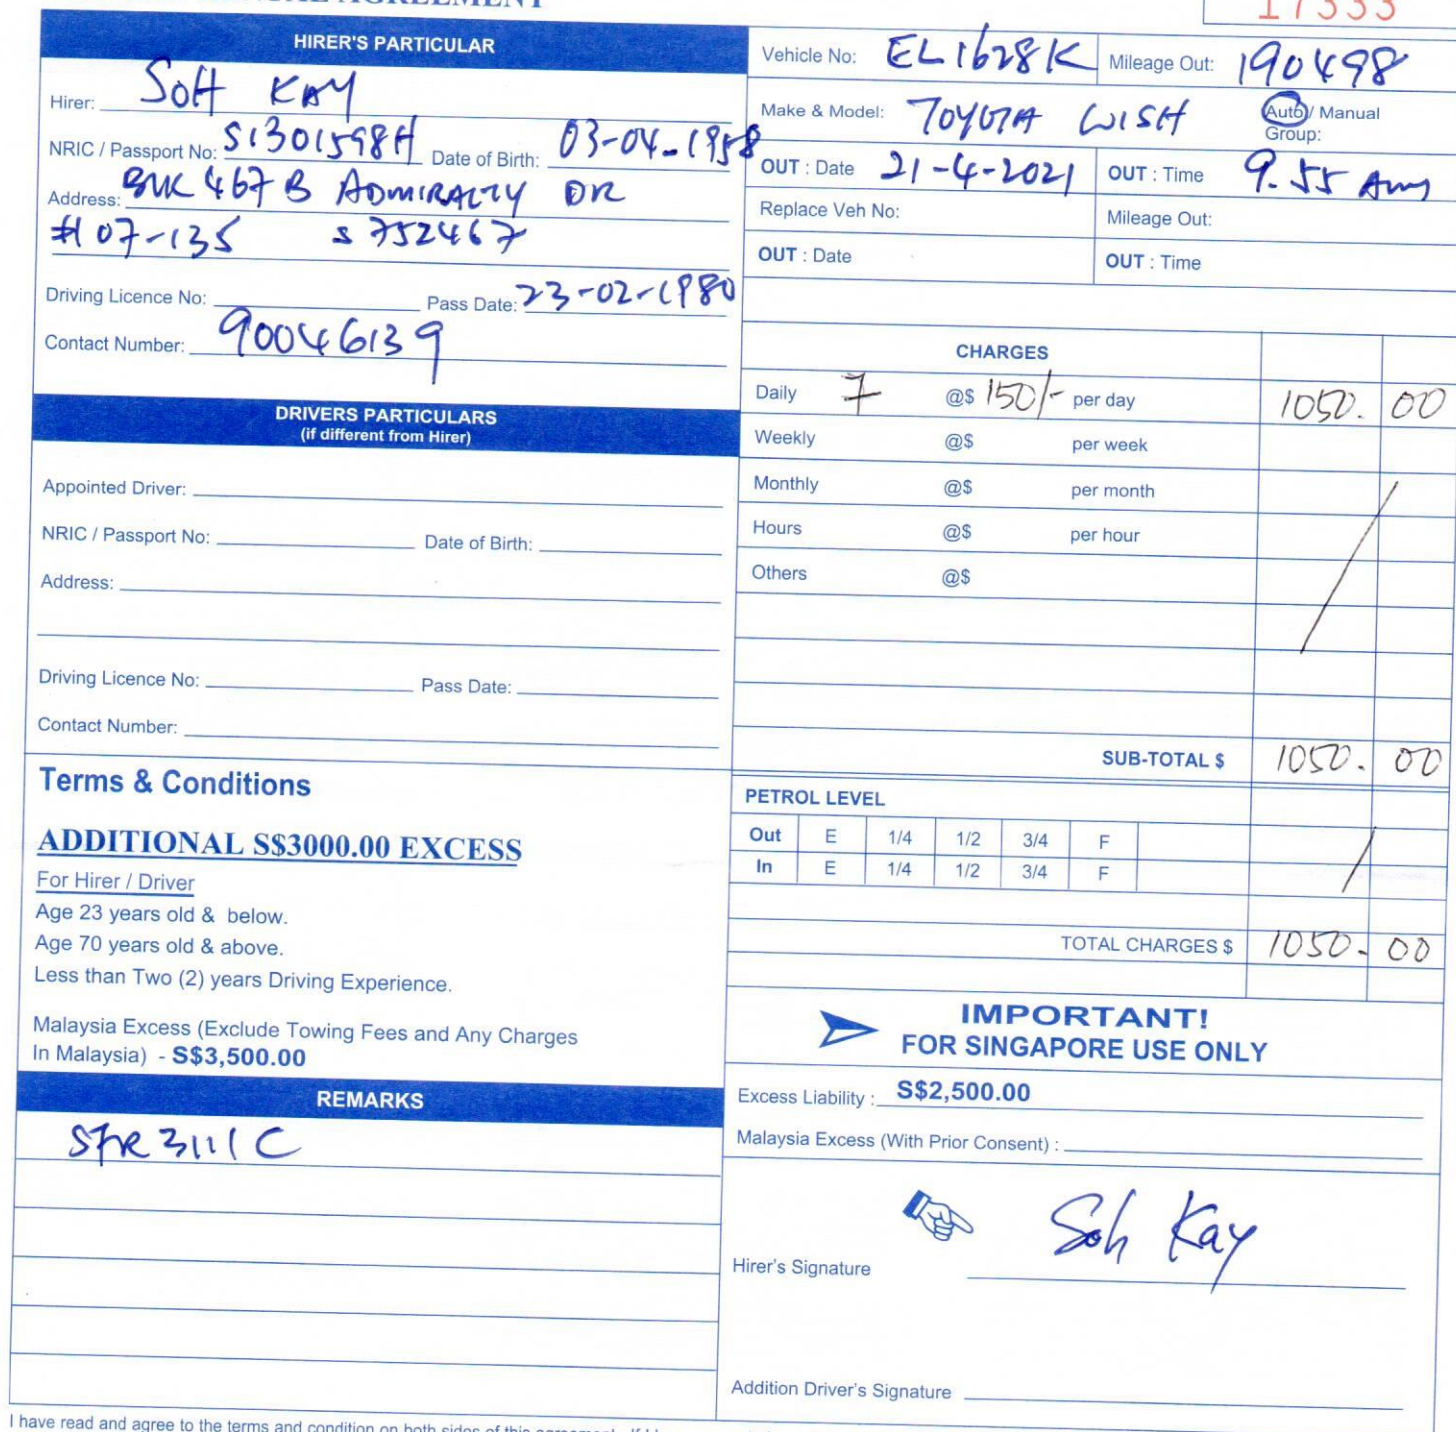 AGREEMENT
17333
HIRER'S PARTICULAR
Hirer: SOH KAY
NRIC / Passport No: S1301598H Date of Birth: 03-04-1958
Address: BLK 467B ADMIRALTY DR
#07-135 S 752467
Driving Licence No: Pass Date: 23-02-1980
Contact Number: 90046139
DRIVERS PARTICULARS
(if different from Hirer)
Appointed Driver:
NRIC / Passport No: Date of Birth:
Address:
Driving Licence No: Pass Date:
Contact Number:
Terms & Conditions
ADDITIONAL S$3000.00 EXCESS
For Hirer / Driver
Age 23 years old & below.
Age 70 years old & above.
Less than Two (2) years Driving Experience.
Malaysia Excess (Exclude Towing Fees and Any Charges
In Malaysia) - S$3,500.00
REMARKS
SFR 3111C
Vehicle No: EL1628K Mileage Out: 190498
Make & Model: TOYOTA WISH Auto / Manual
Group:
OUT : Date 21-4-2021 OUT : Time 9.55 Am
Replace Veh No: Mileage Out:
OUT : Date OUT : Time
CHARGES
Daily 7 @$ 150/- per day 1050. 00
Weekly @$ per week
Monthly @$ per month
Hours @$ per hour
Others @$
SUB-TOTAL $ 1050. 00
PETROL LEVEL
Out E 1/4 1/2 3/4 F
In E 1/4 1/2 3/4 F
TOTAL CHARGES $ 1050. 00
IMPORTANT!
FOR SINGAPORE USE ONLY
Excess Liability : S$2,500.00
Malaysia Excess (With Prior Consent) :
Hirer's Signature Soh Kay
Addition Driver's Signature
I have read and agree to the terms and condition on both sides of this agreement.